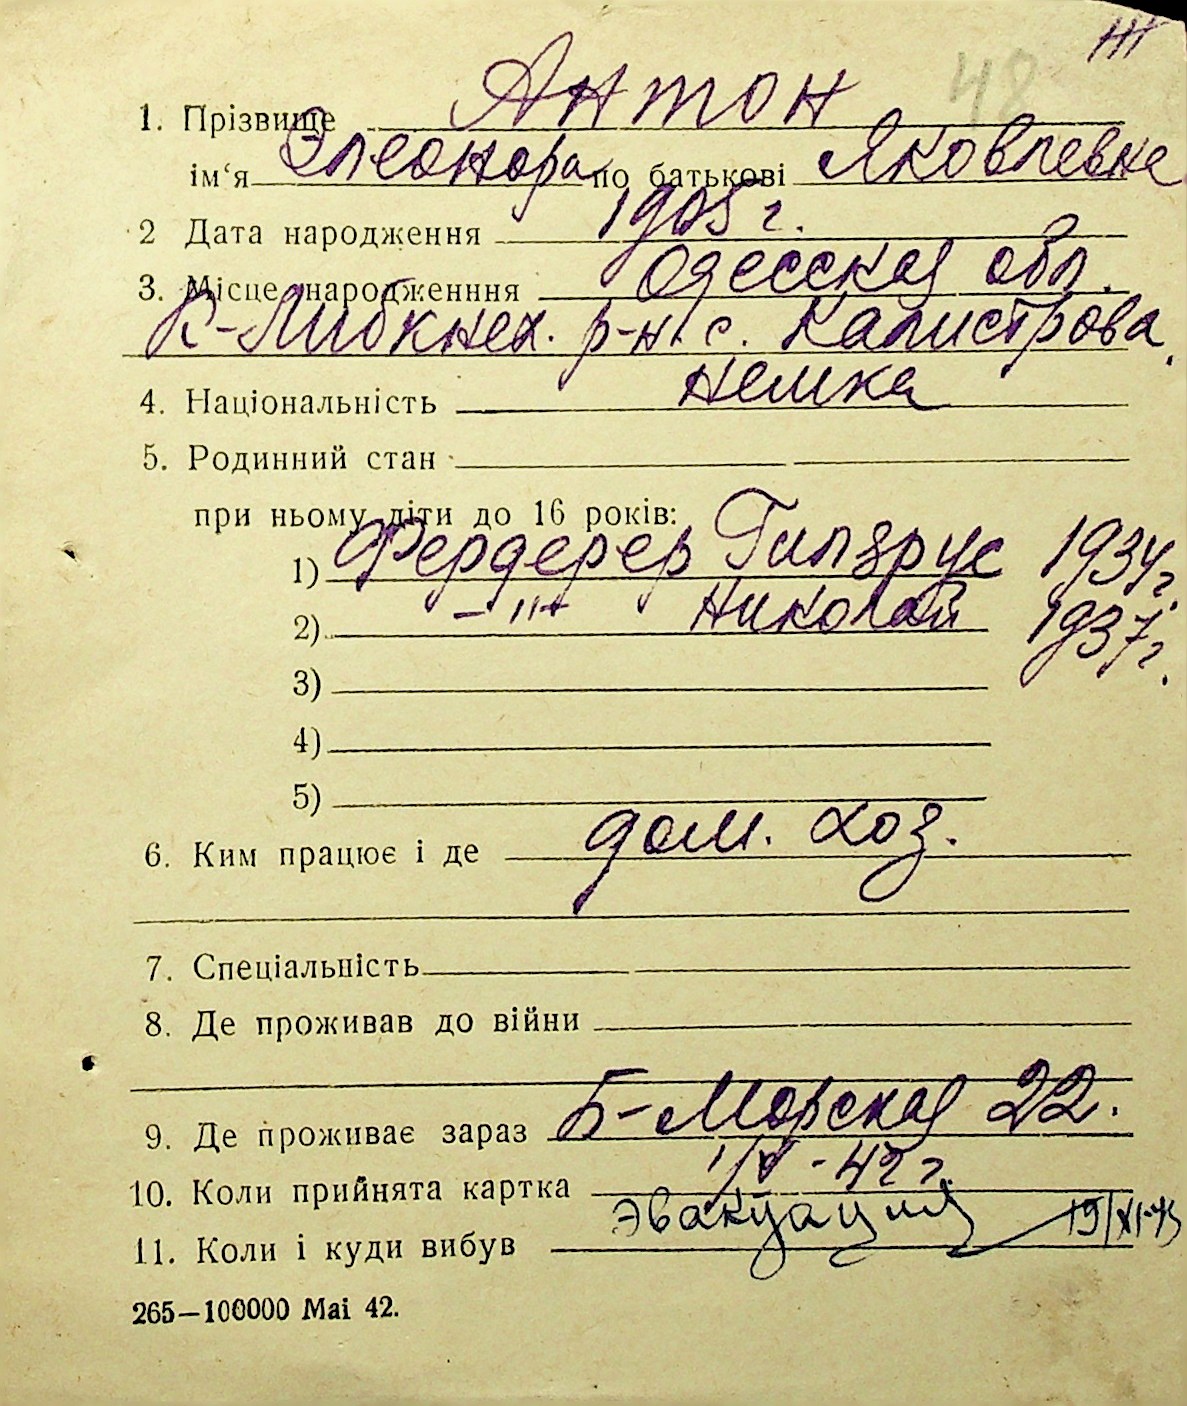 48
1. Прізвище Антон
ім‘я Элеонора по батькові Яковлевна
2 Дата народження 1905 г.
3. Місце народженння Одесская обл.
К-Либкнех. р-н. с. Калистрова.
4. Національність немка
5. Родинний стан
при ньому діти до 16 років:
1) Фердерер Гилзрус 1934 г.
2) –"– Николай 1937 г.
3)
4)
5)
6. Ким працює і де дом. хоз.
7. Спеціальність
8. Де проживав до війни
9. Де проживає зараз Б-Морская 22.
10. Коли прийнята картка 1/V-42 г.
11. Коли і куди вибув Эвакуация 19/XI-43
265—100000 Mai 42.